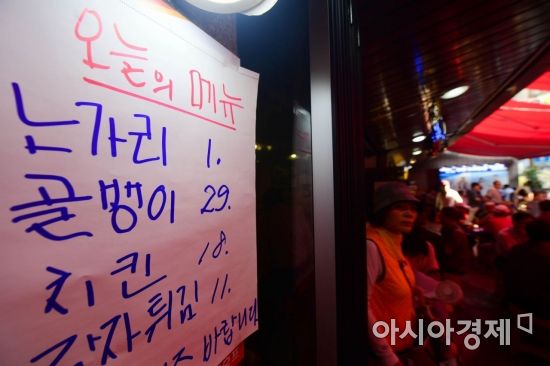 오늘의 메뉴
노가리 1.
골뱅이 29.
치킨 18.
감자튀김 11.
바랍니다
아시아경제